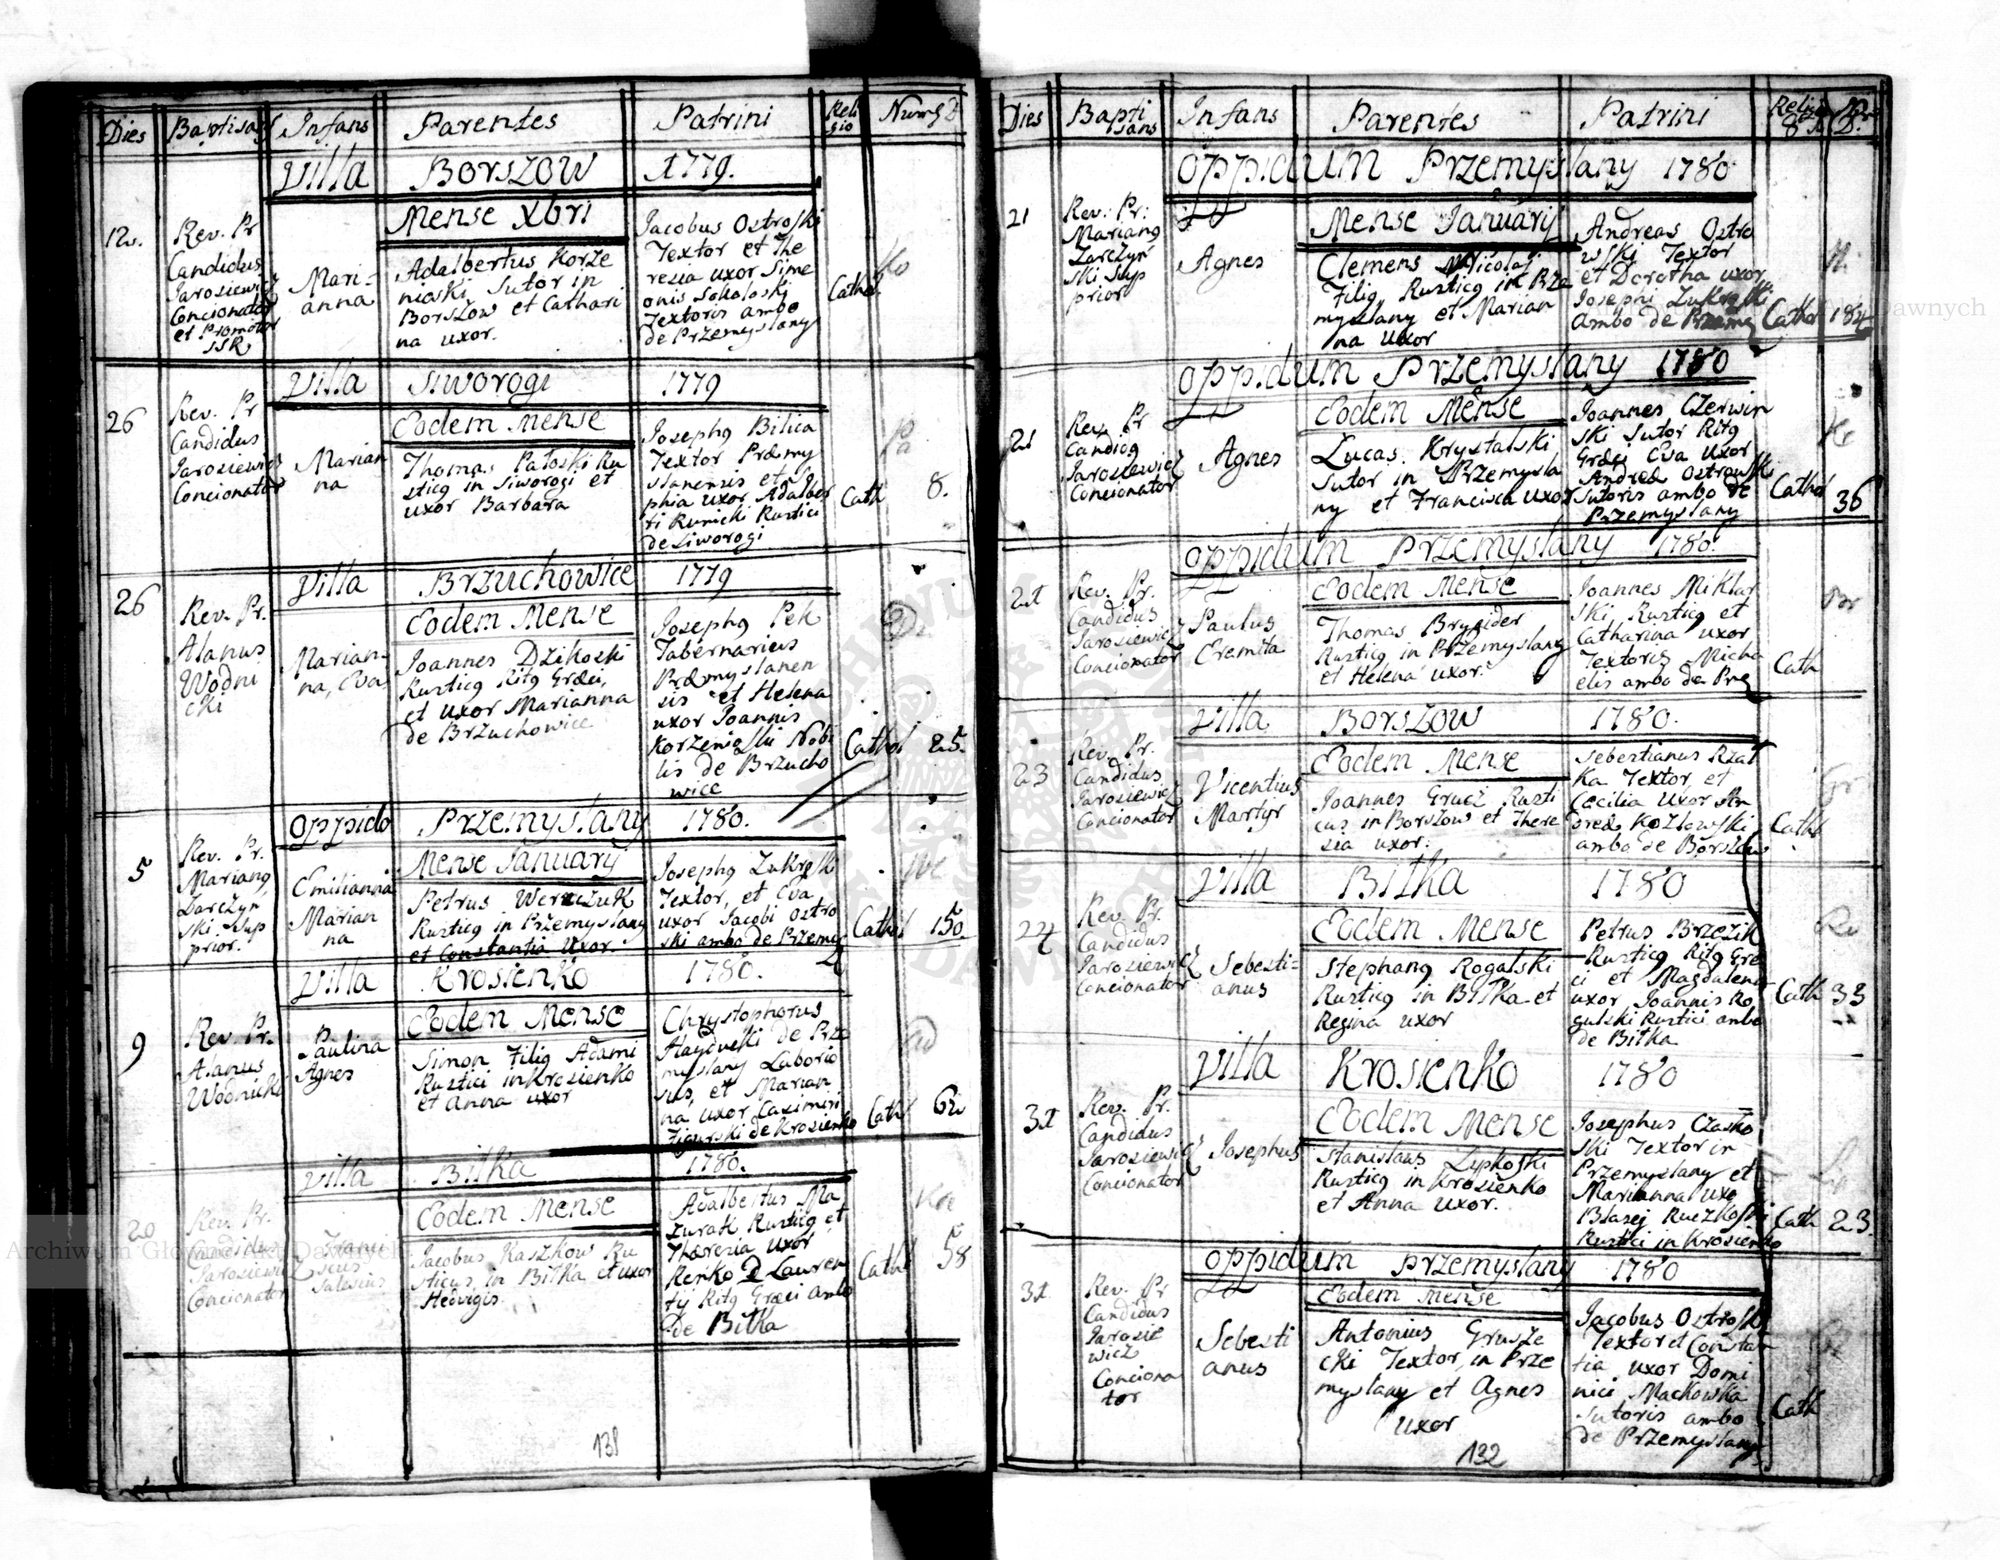 Dies Baptisans Infans Parentes Patrini Religio
Villa Borszow 1779.
Mense Xbri
12.
Rev. Pr
Candidus
Jarosiewicz
Concionator
et Promotor
SSR
Mari-
anna
Adalbertus Korze
nioski Sutor in
Borszow et Cathari
na uxor.
Jacobus Ostroski
Textor et The
resia uxor Sime
onis Sokoloski
Textoris ambo
de Przemyslany
Cathol.
Villa Siworogi 1779
Eodem Mense
26
Rev. Pr
Candidus
Jarosiewicz
Concionator
Marian
na
Thomas Pałoski Ru
sticq in Siworogi et
uxor Barbara
Josephq Bilica
Textor Præmy
slanensis et
phia uxor Adalber
ti Runicki Rustici
de Siworogi
Cath
8.
Villa Brzuchowice 1779
Eodem Mense
26
Rev. Pr.
Alanus
Wodni
cki
Marian-
na, Eva,
Joannes Dzikoski
Rusticq Ritq Græci,
et uxor Marianna
de Brzuchowice
Josephq Pek
Tabernarius
Præmyslanen
sis et Helena
uxor Joannis
Korzenioski Nobi
lis de Brzucho
wice
Cathol 25.
Oppido Przemyslany 1780.
Mense January
5
Rev. Pr.
Marianq
Zarczyn
ski Sup
prior.
Emilianna
Marian
na
Petrus Werczuk
Rusticq in Przemyslany
et Constantia uxor.
Josephq Zukroski
Textor, et Eva
uxor Jacobi Ostro
ski ambo de Przemy
Cathol 150.
Villa Krosienko 1780.
Eodem Mense
9
Rev. Pr.
Alanus
Wodnicki
Paulina
Agnes
Simon Filiq Adami
Rustici in Krosienko
et Anna uxor
Chrystophorus
Haydueski de Prze
myslany Laborio
sus, et Marian
na uxor Casimiri
de Krosienko
Cath 62
Villa Bitka 1780.
Eodem Mense
20
Rev. Pr.
Candidus
Jarosiewicz
Concionator
Franci
scus
Salesius
Jacobus Kaszkow Ru
sticus, in Bitka et uxor
Hedvigis.
Adalbertus Ma
zurak Rusticq et
Thæresia uxor
Renko D Lauren
tij Ritq Græci ambo
de Bitka
Cath 58
131
Dies Bapti
sans Infans Parentes Patrini Religio
Oppidum Przemyslany 1780
Mense January
21
Rev: Pr:
Marianq
Zarczyn
ski Sup
prior
Agnes
Clemens Nicolai
Filiq Rusticq in Prze
myslany et Marian
na uxor
Andreas Ostro
wski Textor
et Dorotha uxor
Josephi Zukroski
ambo de Przemy
Cathol 184
Oppidum Przemyslany 1780
Eodem Mense
21
Rev. Pr
Candidq
Jarosiewicz
Concionator
Agnes
Lucas Krystalski
Sutor in Przemysla
ny et Francisca uxor
Joannes Czerwin
ski Sutor Ritq
Græci Eva uxor
Andreæ Ostrowski
Sutoris ambo de
Przemyslany
Cathol 36
Oppidum Przemyslany 1780.
Eodem Mense
21
Rev. Pr.
Candidus
Jarosiewicz
Concionator
Paulus
Eremita
Thomas Bryeider
Rusticq in Przemyslany
et Helena uxor.
Joannes Miklas
ski Rusticq et
Catharina uxor
Textoris Micha
elis ambo de Prze
Cath
Villa Borszow 1780.
Eodem Mense
23
Rev. Pr.
Candidus
Jarosiewicz
Concionator
Vicentius
Martyr
Joannes Grucz Rusti
cus in Borszow et There
sia uxor.
Sebestianus Rzat
ka Textor, et
Cæcilia uxor An
dreæ Kozlowski
ambo de Borszow
Cath
Villa Bitka 1780
Eodem Mense
24
Rev. Pr.
Candidus
Jarosiewicz
Concionator
Sebesti-
anus
Stephanq Rogalski
Rusticq in Bitka et
Regina uxor
Petrus Brzezik
Rusticq Ritq Græ
ci et Magdalena
uxor Joannis Ro
gulski Rustici ambo
de Bitka
Cath 33
Villa Krosienko 1780
Eodem Mense
31
Rev. Pr.
Candidus
Jarosiewicz
Concionator
Josephus
Stanislaus Lipkoski
Rusticq in Krosienko
et Anna uxor.
Josephus Czasko
ski Textor in
Przemyslany et
Marianna uxo
Blasej Ruczkoski
Rustici in Krosienko
Cath 23.
Oppidum Przemyslany 1780
Eodem Mense
31
Rev. Pr
Candidus
Jarosie
wicz
Conciona
tor
Sebesti
anus
Antonius Grusze
cki Textor, in Prze
myslany et Agnes
uxor
Jacobus Ostroski
Textor et Constan
tia uxor Domi
nici Mackowka
Sutoris ambo
de Przemyslany
Cath
132
Archiwum Główne Akt Dawnych